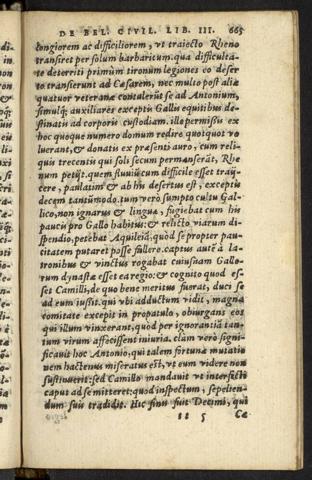 DE BEL. CIVIL. LIB. III. 665
longiorem ac difficiliorem, vt traiecto Rheno
transiret per solum barbaricum. qua difficulta-
te deterriti primùm tironum legiones eo deser
to transierunt ad Cæsarem, nec multo post aliæ
quatuor veteranæ contulerūt se ad Antonium,
simulq; auxiliares exceptis Gallis equitibus de-
stinatis ad corporis custodiam. ille permissis ex
hoc quoque numero domum redire quotquot vo
luerant, & donatis ex præsenti auro, cum reli-
quis trecentis qui soli secum permanserāt, Rhe
num petijt. quem fluuiū cum difficile esset traij-
cere, paulatim & ab his desertus est, exceptis
decem tantūmodo. tum verò sumpto cultu Gal-
lico, non ignarus & linguæ, fugiebat cum his
paucis pro Gallo habitus: & relicto viarum di-
spendio, petebat Aquileiā, quod se propter pau-
citatem putaret posse fallere. captus autē à la-
tronibus & vinctus rogabat cuiusnam Gallo-
rum dynastæ esset ea regio: & cognito quod es-
set Camilli, de quo bene meritus fuerat, duci se
ad eum iussit. qui vbi adductum vidit, magna
comitate excepit in propatulo, obiurgans eos
qui illum vinxerant, quod per ignorantiā tan-
tum virum affecissent iniuria. clàm verò signi-
ficauit hoc Antonio, qui talem fortunæ mutatio
nem hactenus miseratus est, vt eum videre non
sustinuerit: sed Camillo mandauit vt interfecti
caput ad se mitteret: quod inspectum, sepelien-
dum suis tradidit. Hic finis fuit Decimi, qui
5 Cæ